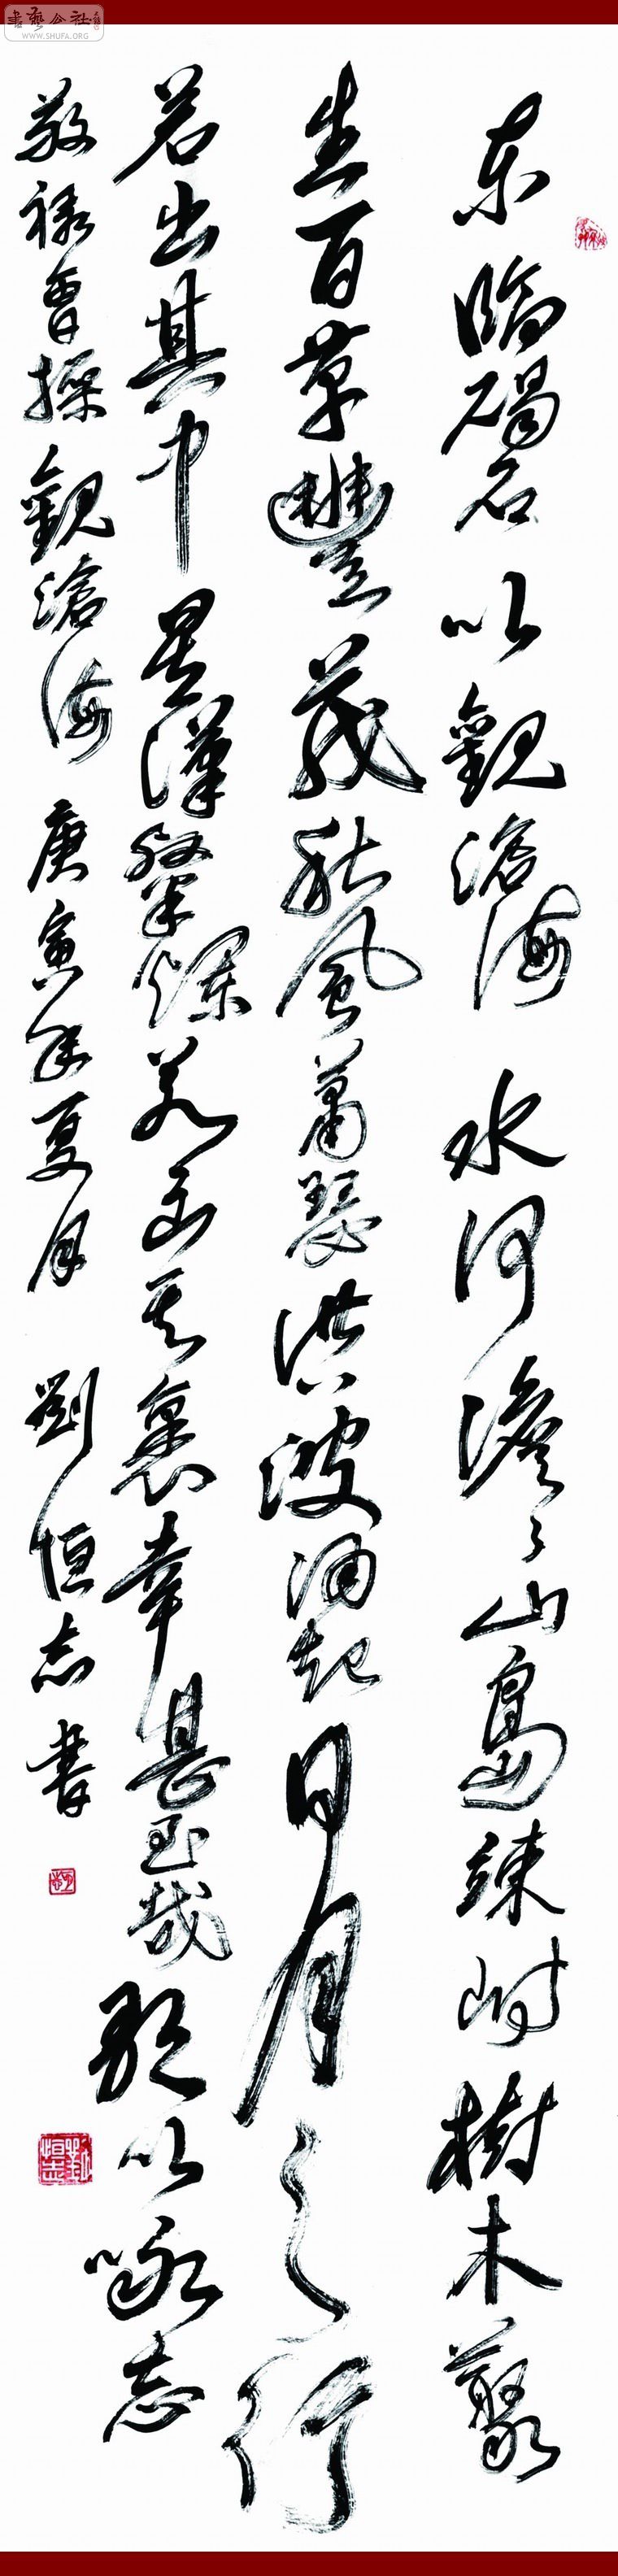 东临碣石以觀滄海水何澹々山島竦峙樹木叢
生百草豐茂秋風蕭瑟洪波涌起日月之行
若出其中星漢粲爛若出其裏幸甚至哉歌以詠志
敬録曹操觀滄海庚寅年夏月劉恒志書
書藝公社
WWW.SHUFA.ORG